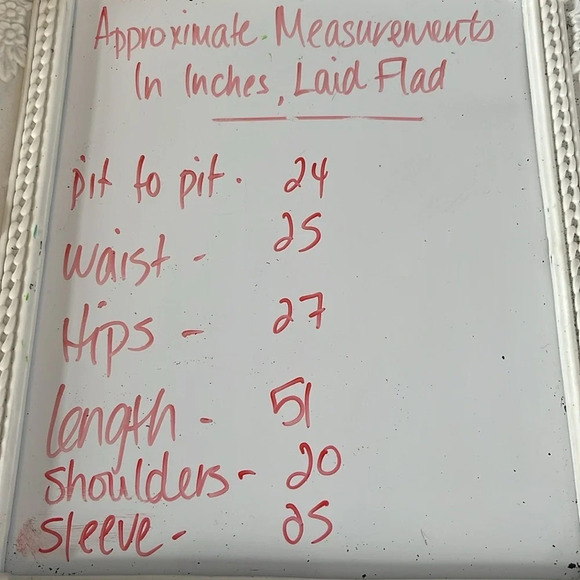 Approximate Measurements
In Inches, Laid Flad
pit to pit. 24
waist - 25
Hips - 27
length - 51
shoulders - 20
sleeve - 25